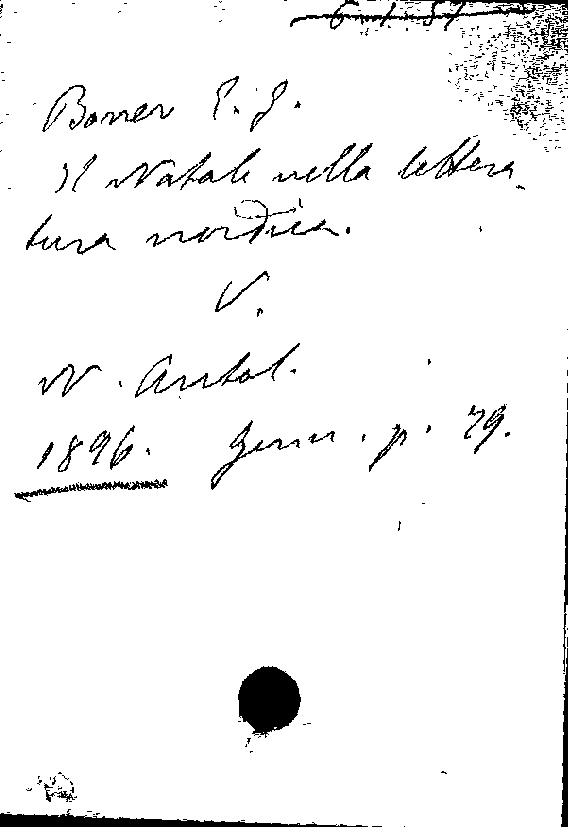 Boner E. G.
Il Natale nella lettera
tura nordica.
V.
N. Antol.
1896. Genn. p. 79.